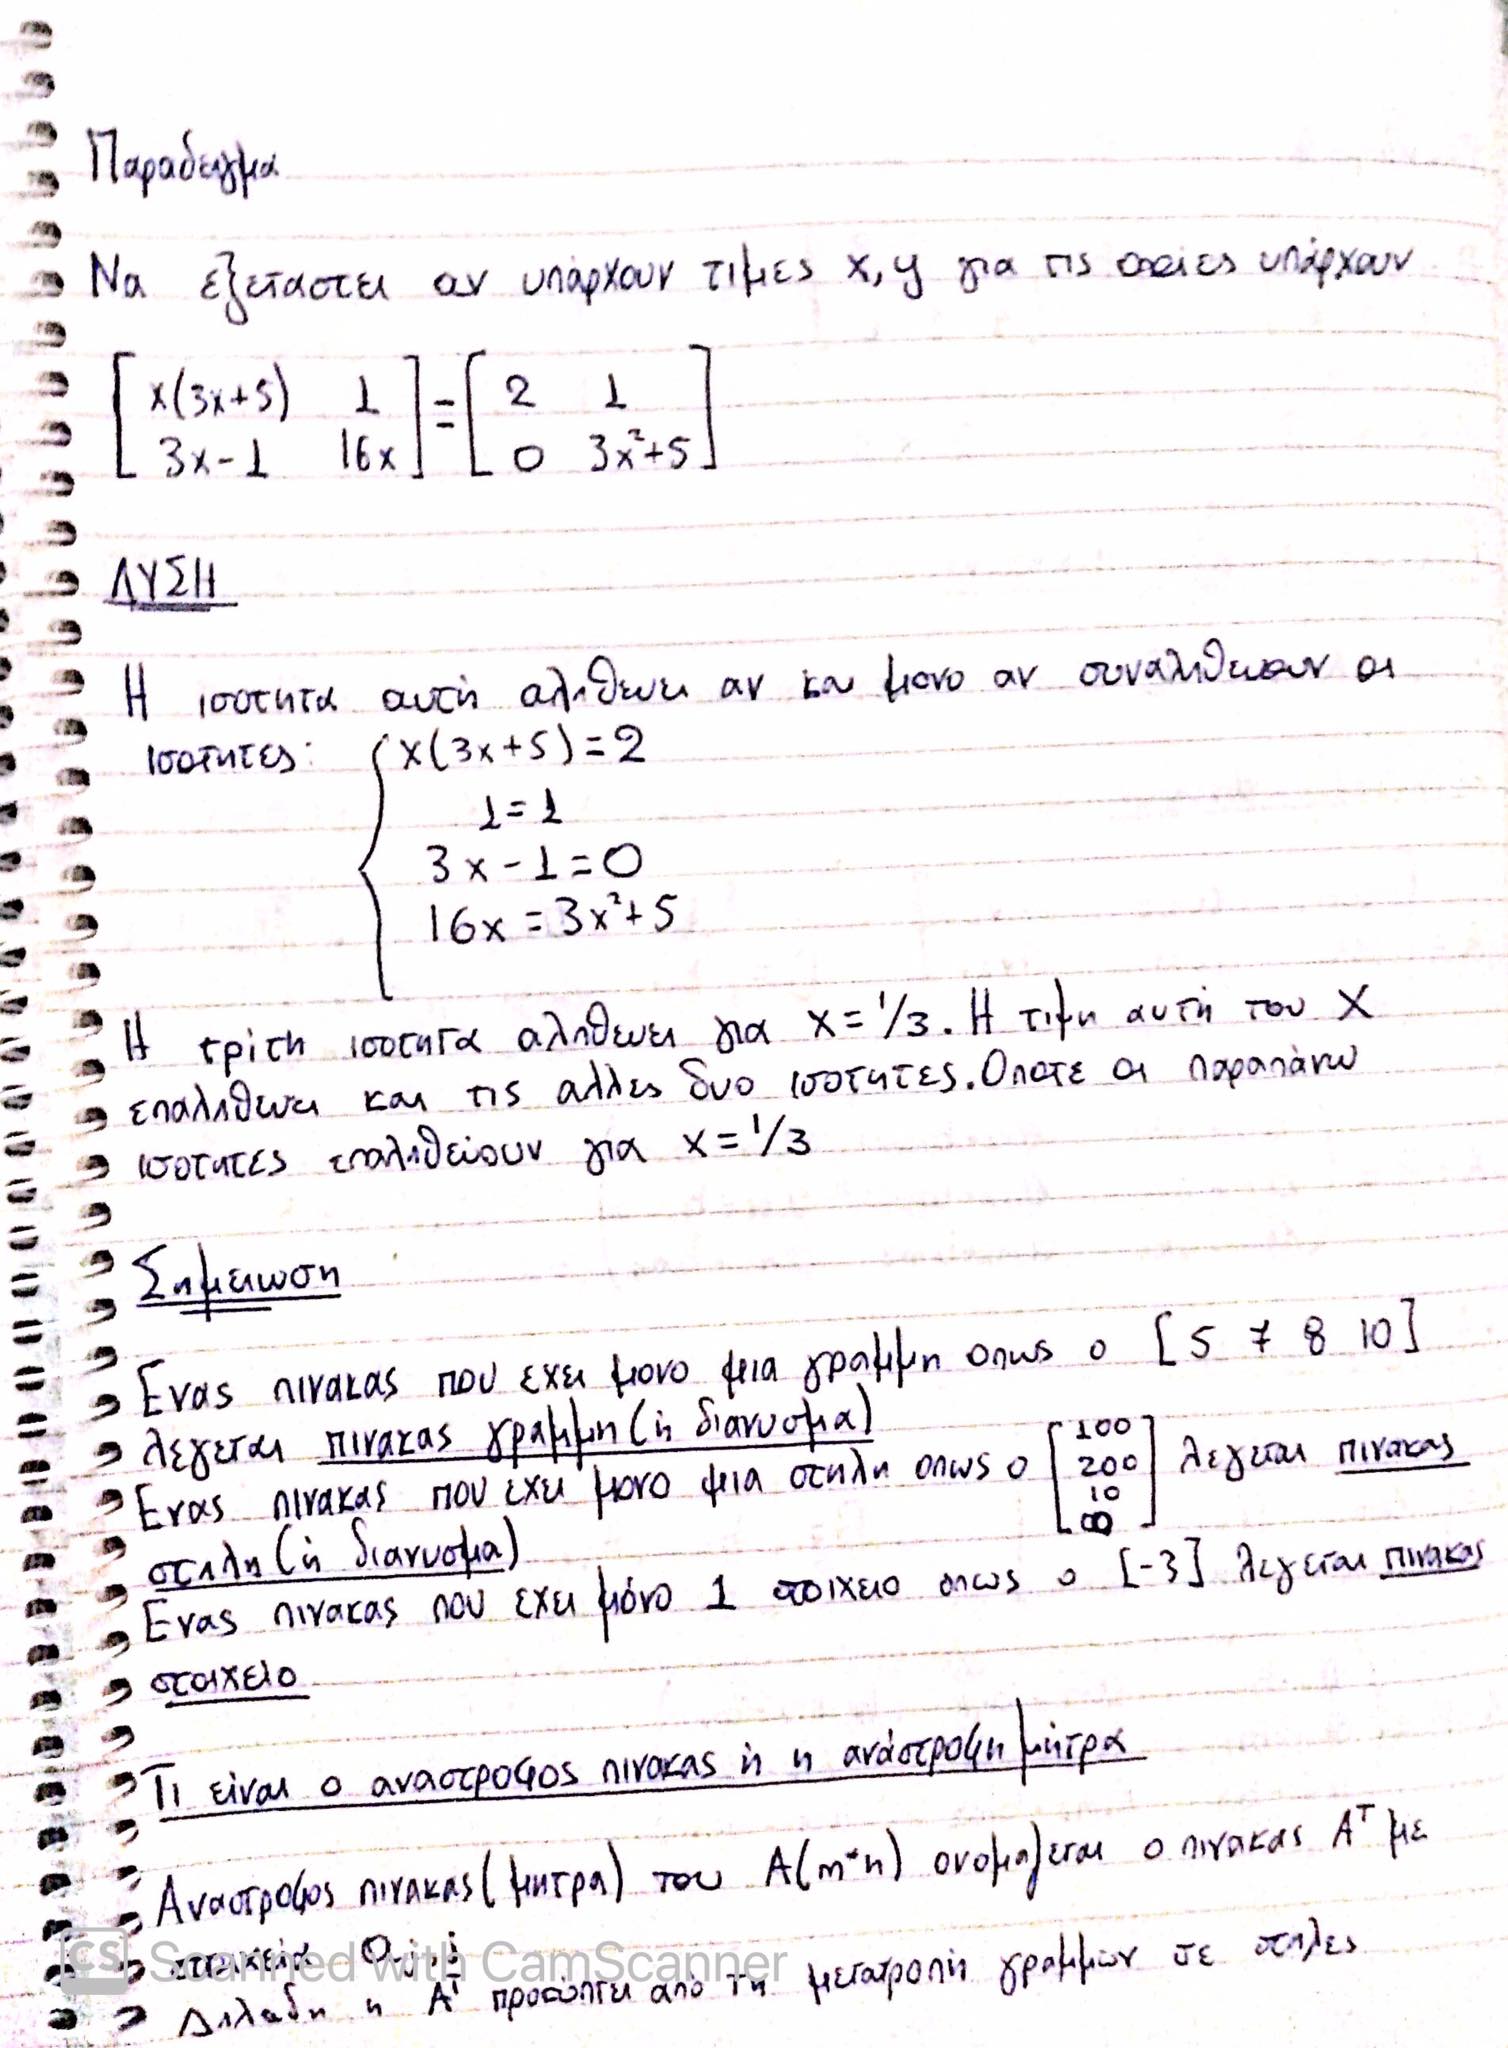 Παραδειγμα
Να εξεταστει αν υπάρχουν τιμες x, y για τις οποιες υπάρχουν
[x(3x+5) 1] = [2 1]
[3x-1 16x] [0 3x²+5]
ΛΥΣΗ
Η ισοτητα αυτή αληθευει αν και μονο αν συναληθευουν οι
ισοτητες: x(3x+5)=2
1=1
3x-1=0
16x=3x²+5
Η τρίτη ισοτητα αληθευει για x=1/3. Η τιμη αυτή του x
επαληθευει και τις αλλες δυο ισοτητες. Οποτε οι παραπάνω
ισοτητες επαληθεύουν για x=1/3
Σημειωση
Ενας πινακας που εχει μονο μια γραμμη οπως ο [5 7 8 10]
λεγεται πινακας γραμμη (ή διανυσμα)
Ενας πινακας που εχει μονο μια στηλη οπως ο [100 200 10 ] λεγεται πινακας
στηλη (ή διανυσμα)
Ενας πινακας που εχει μόνο 1 στοιχειο οπως ο [-3] λεγεται πινακας
στοιχειο
Τι είναι ο αναστροφος πινακας ή η ανάστροφη μήτρα
Αναστροφος πινακας (μητρα) του Α(m*n) ονομαζεται ο πινακας Α^T με
στοιχεία
Δηλαδη η A^T προκύπτει από τη μετατροπή γραμμών σε στηλες
CS Scanned with CamScanner